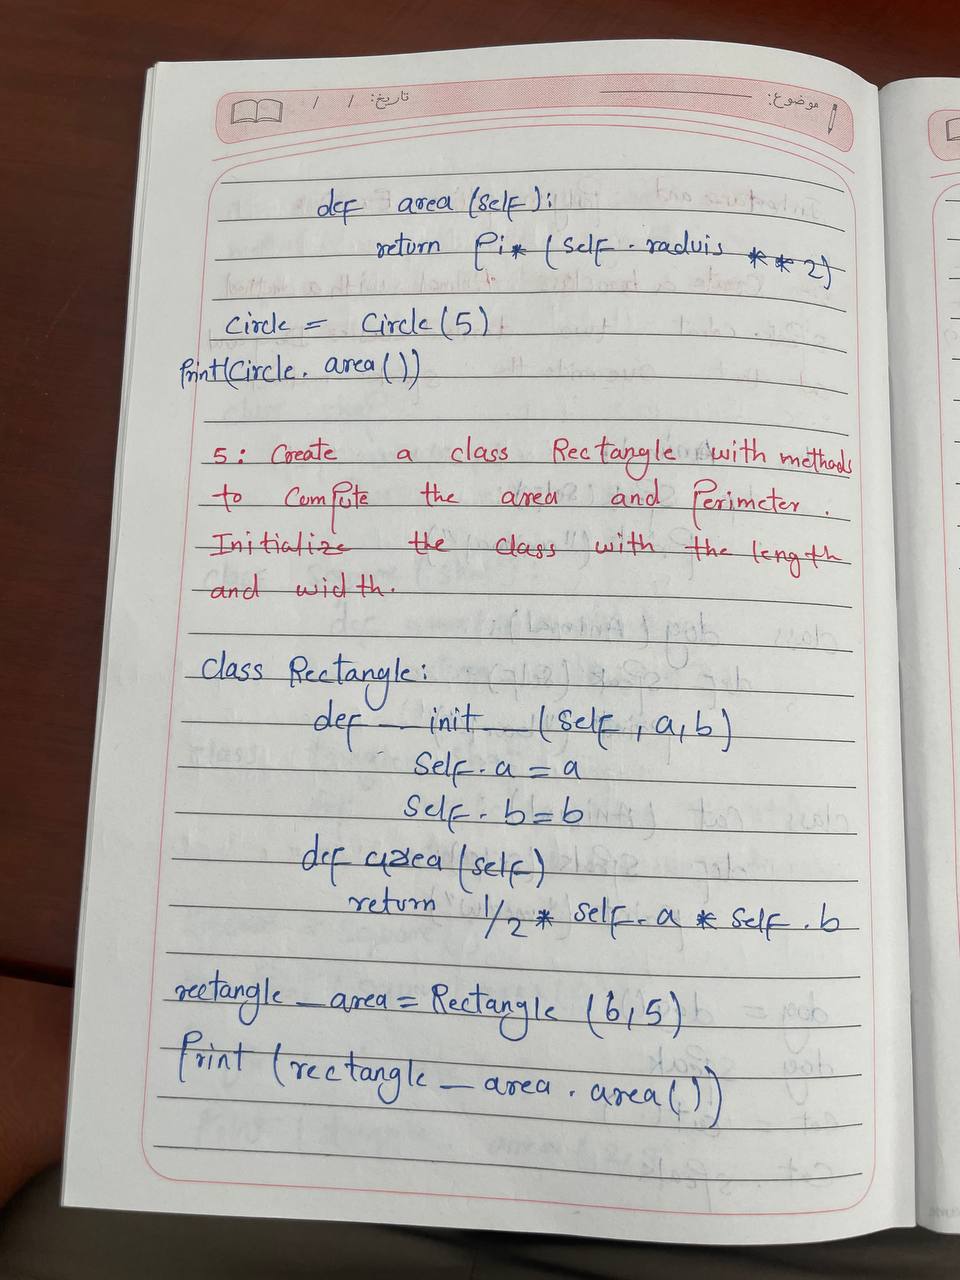 موضوع: تاریخ: / /
def area (self):
return Pi * (self . raduis ** 2)
Circle = Circle (5)
Print(Circle. area ())
5: Create a class Rectangle with methods
to Compute the area and Perimeter.
Initialize the class with the length
and width.
Class Rectangle:
def __init__ (self, a, b)
Self. a = a
Self. b = b
def area (self)
return 1/2 * Self. a * Self. b
rectangle_area = Rectangle (6,5)
Print (rectangle_area . area ())